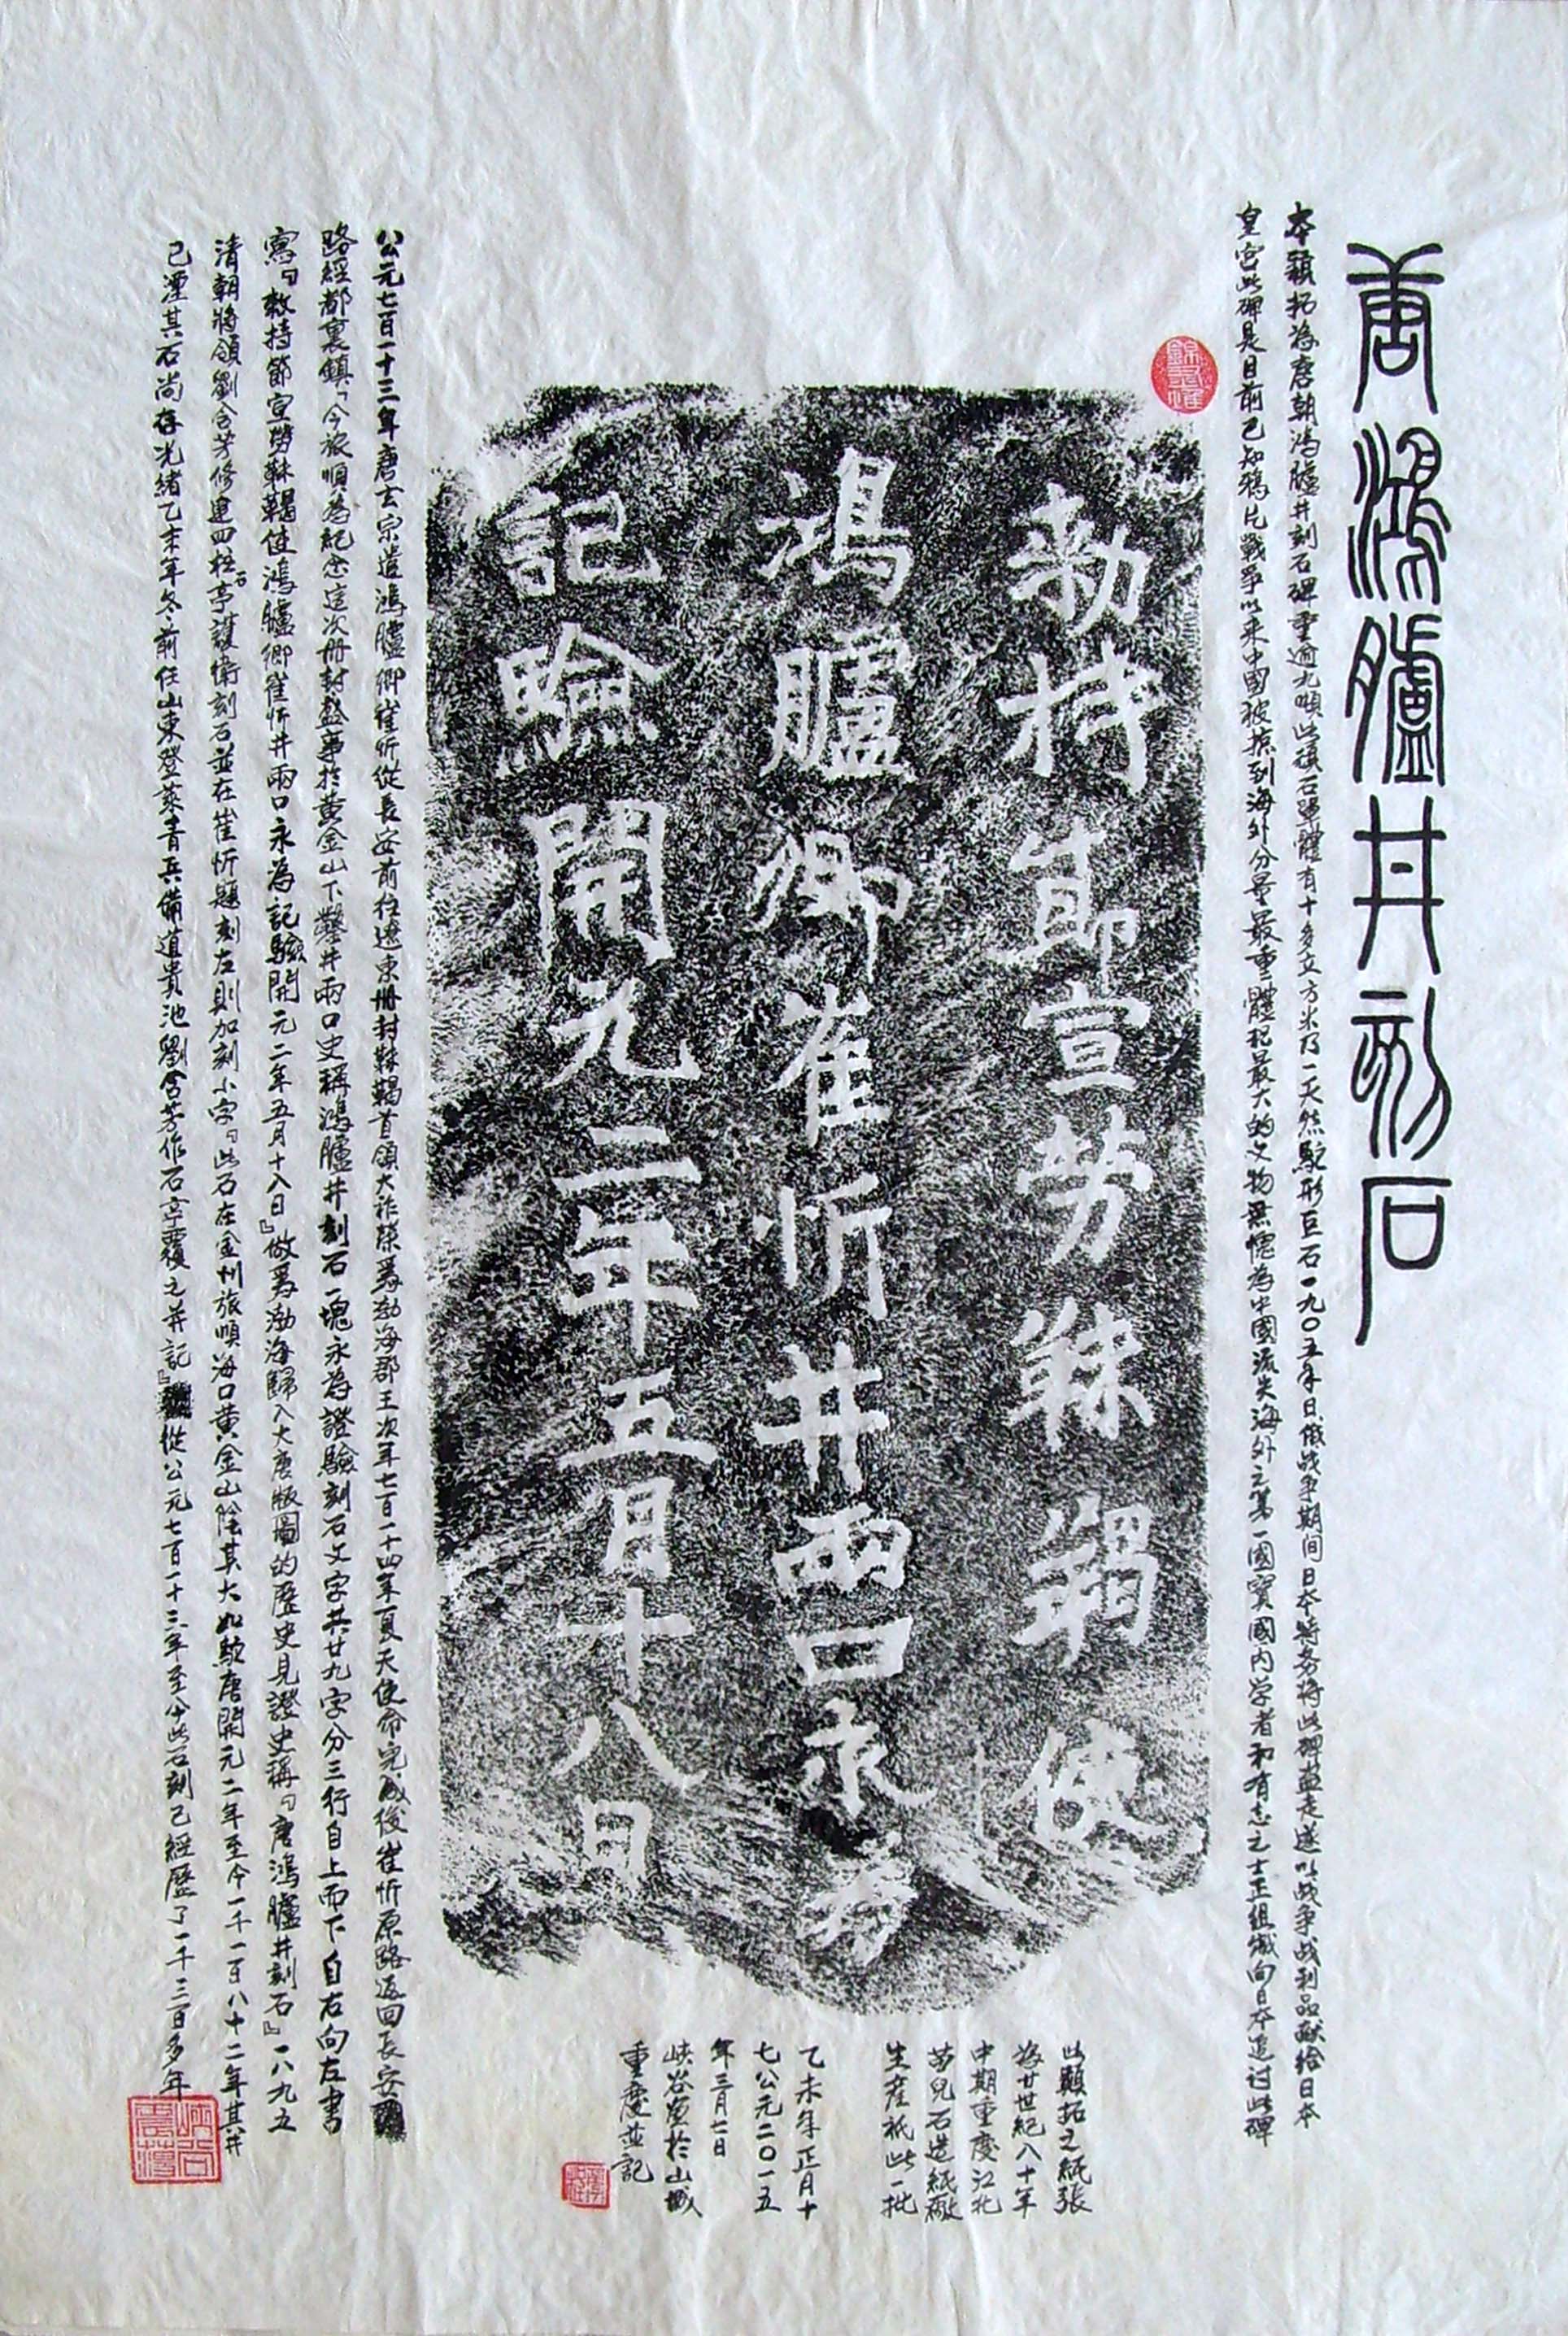 唐鴻臚井刻石
本顆拓為唐朝鴻臚井刻石碑重逾九噸此碩石單體有十多立方米乃一天然駝形巨石一九〇五年日俄战争期间日本特务将此碑盗走遂以战争战利品献给日本
皇宮此碑是目前已知鴉片戰爭以来中國被掠到海外分量最重體积最大的文物無愧為中國流失海外之第一國寳國内学者和有志之士正组織向日本追讨此碑
勅持節宣勞靺羯使
鴻臚卿崔忻井兩口永為
記驗開元二年五月十八日
公元七百一十三年唐玄宗遣鴻臚卿崔忻從長安前往遼東册封靺鞨首領大祚榮爲渤海郡王次年七百一十四年夏天使命完成後崔忻原路返回長安
路經都裏鎮「今旅順為紀念這次册封盛事於黄金山下鑿井兩口史稱鴻臚井刻石一塊永為證驗刻石文字共廿九字分三行自上而下自右向左書
寫『敕持節宣勞靺鞨使鴻臚卿崔忻井兩口永為記驗開元二年五月十八日』做爲渤海歸入大唐版圖的歷史見證史稱『唐鴻臚井刻石』一八九五
清朝將領劉含芳修建四柱石亭護衛刻石並在崔忻題刻左則加刻小字『此石在金州旅順海口黄金山陰其大如駝唐開元二年至今一千一百八十二年其井
已湮其石尚存光緒乙未年冬前任山東登萊青兵備道貴池劉含芳作石亭覆之并記』從公元七百一十三年至今此石刻已經歷了一千三百多年
此顆拓之紙張
為廿世紀八十年
中期重慶江北
苗兒石造紙廠
生産祇此一批
乙未年正月十
七公元二〇一五
年三月七日
峽谷寫於山城
重慶並記